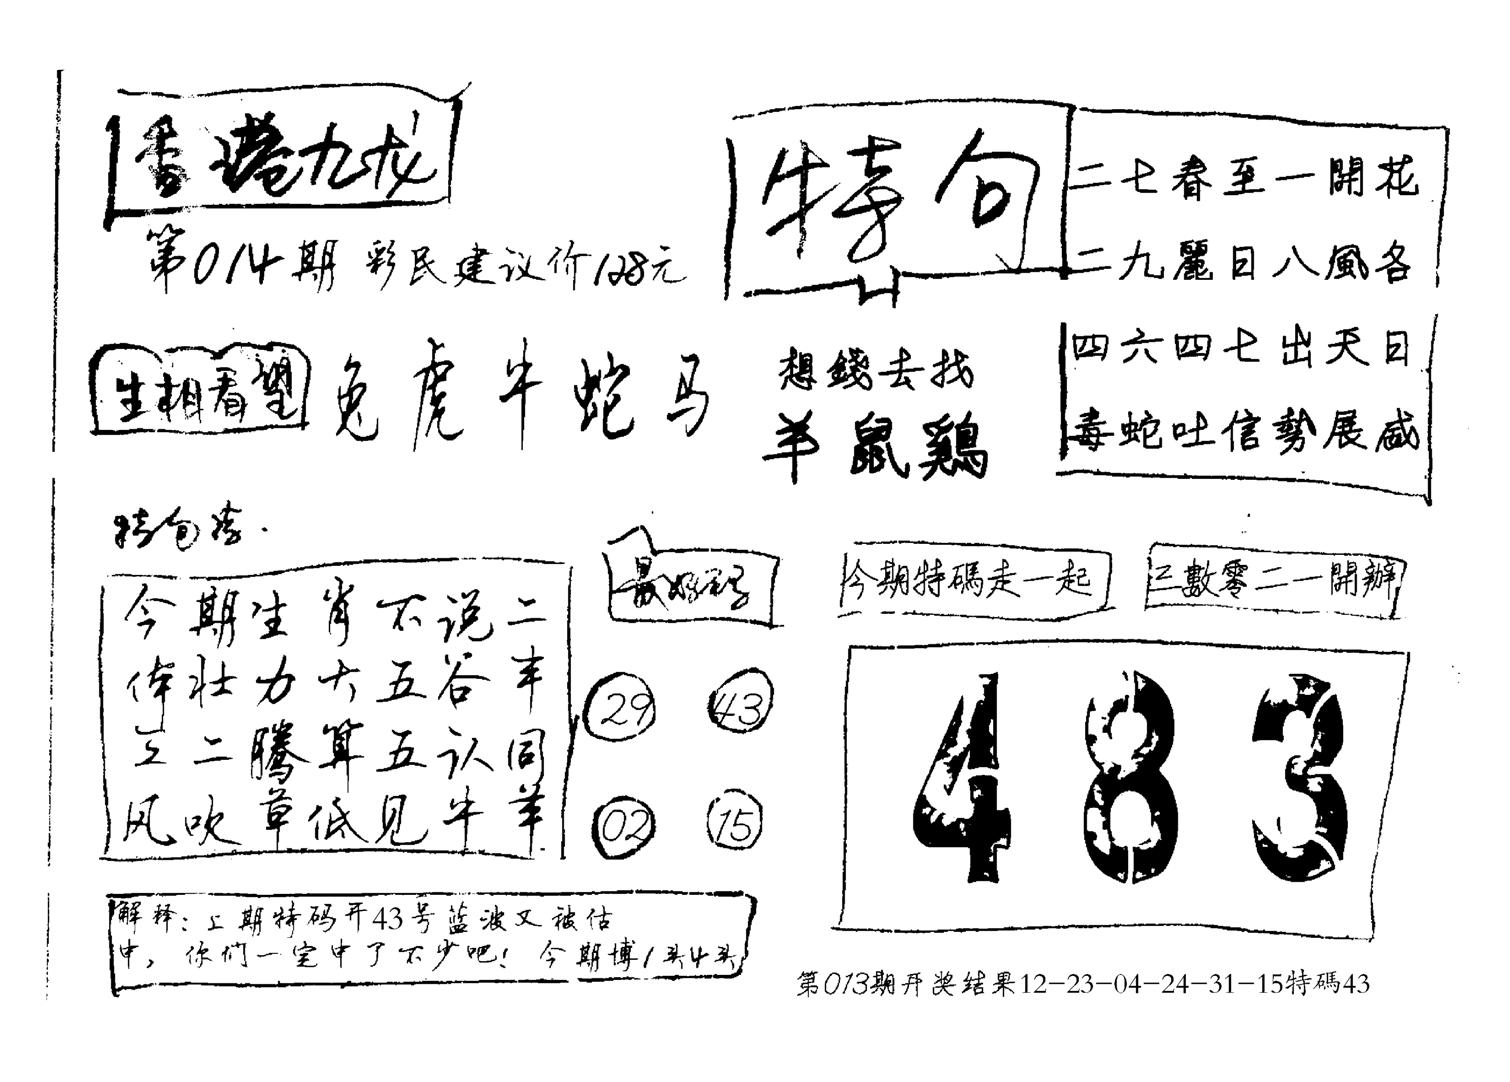 香港九龙
第014期 彩民建议价128元
特句
二七春至一開花
二九麗日八風各
四六四七出天日
毒蛇吐信勢展威
生相看望 兔虎牛蛇马
想錢去找
羊鼠鷄
今期生肖不说二
体壮力大五谷丰
三二腾算五认同
风吹草低见牛羊
最好码
29 43
02 15
今期特碼走一起
三數零二一開辦
483
解释：上期特码开43号蓝波又被估
中，你们一定中了不少吧！今期博1头4头
第013期开奖结果12-23-04-24-31-15特碼43